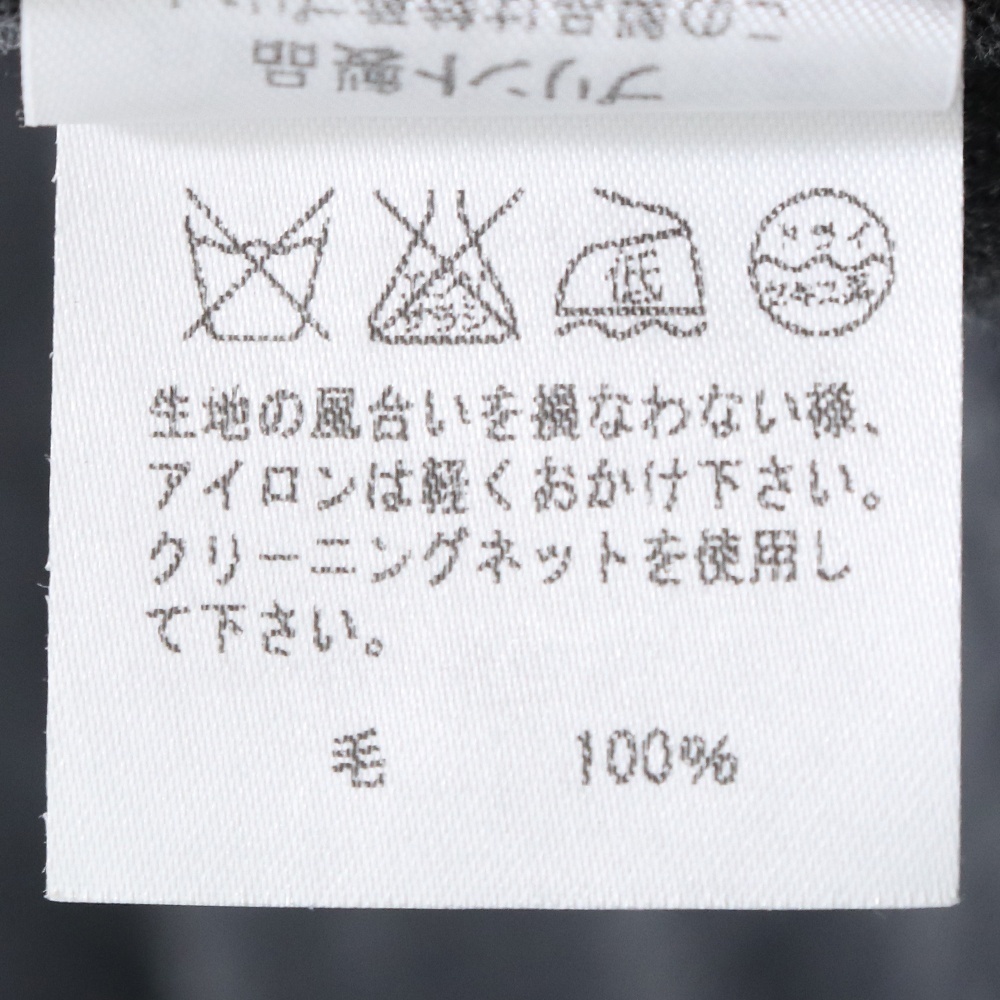 プリント製品
この製品は特殊プリント
エンソ
サラシ
低
ドライ
セキユ系
生地の風合いを損なわない様、
アイロンは軽くおかけ下さい。
クリーニングネットを使用し
て下さい。
毛 100%